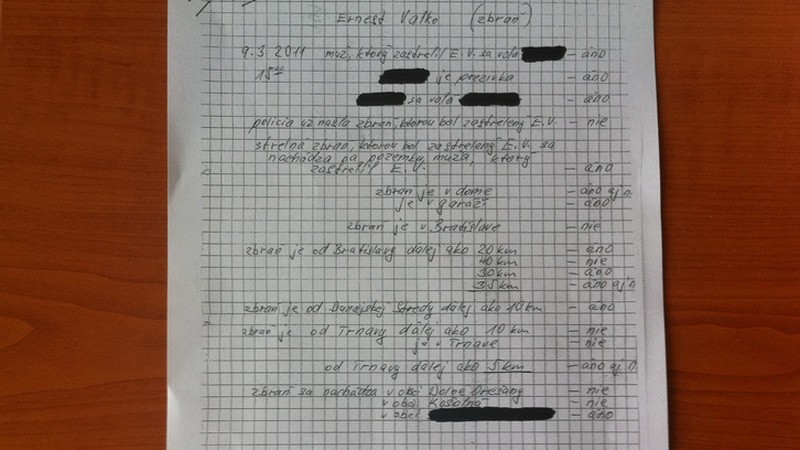 Ernest Valko (zbraň)
9.3.2011 muž, ktorý zastrelil E.V. sa volá - áno
15⁰⁰ je prezívka - áno
sa volá - áno
polícia už našla zbraň, ktorou bol zastrelený E.V. - nie
strelná zbraň, ktorou bol zastrelený E.V. sa
nachádza na pozemku muža, ktorý
zastrelil E.V. - áno
zbraň je v dome - áno aj n.
je v garáži - áno
zbraň je v Bratislave - nie
zbraň je od Bratislavy ďalej ako 20 km - áno
40 km - nie
30 km - áno
35 km - áno aj n.
zbraň je od Dunajskej Stredy ďalej ako 10 km - áno
zbraň je od Trnavy ďalej ako 10 km - nie
je v Trnave - nie
od Trnavy ďalej ako 5 km - áno aj n.
zbraň sa nachádza v obci Dolné Orešany - nie
v obci Košolná - nie
v obci - áno